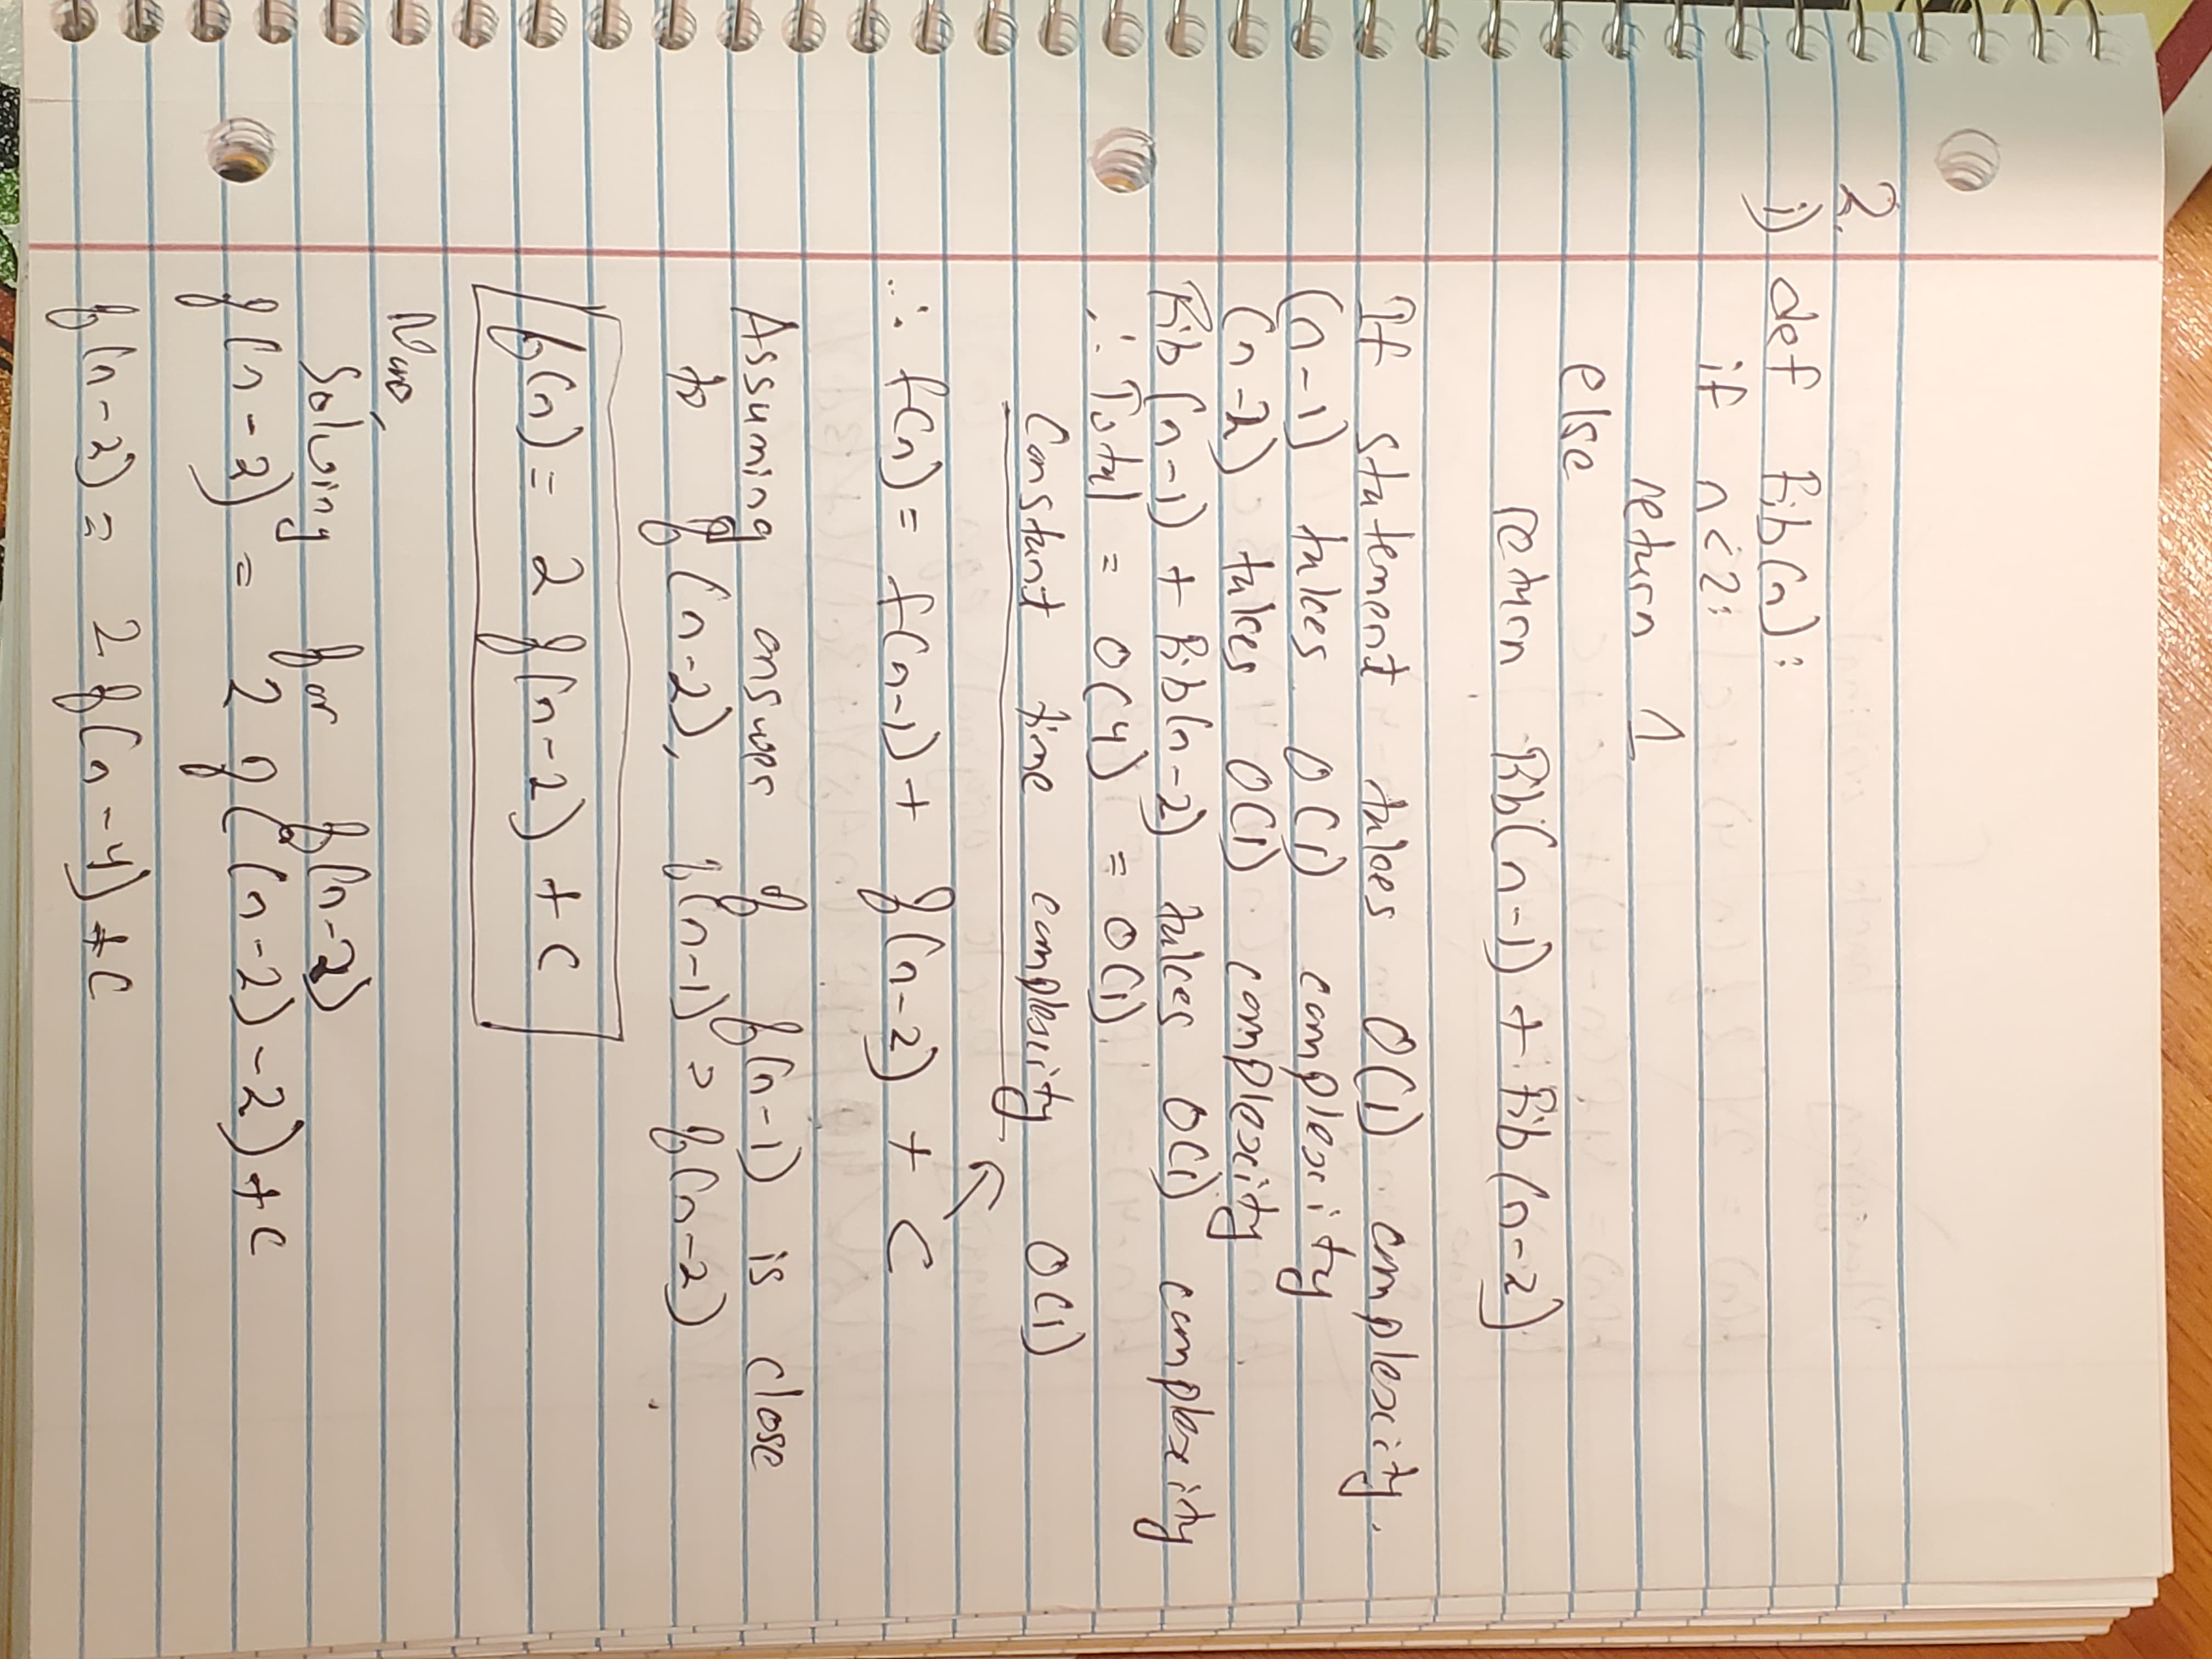 2.
i) def fib(n):
if n<2:
return 1
else
return fib(n-1) + fib(n-2)
If statement takes O(1) complexity.
(n-1) takes O(1) complexity
(n-2) takes O(1) complexity
fib(n-1) + fib(n-2) takes O(1) complexity
∴ Total = O(4) = O(1)
Constant time complexity O(1)
∴ f(n) = f(n-1) + f(n-2) + C
Assuming answer of f(n-1) is close
to f(n-2), f(n-1) = f(n-2)
f(n) = 2 f(n-2) + C
Now,
Solving for f(n-2)
f(n-2) = 2 f((n-2)-2) + C
f(n-2) = 2 f(n-4) + C